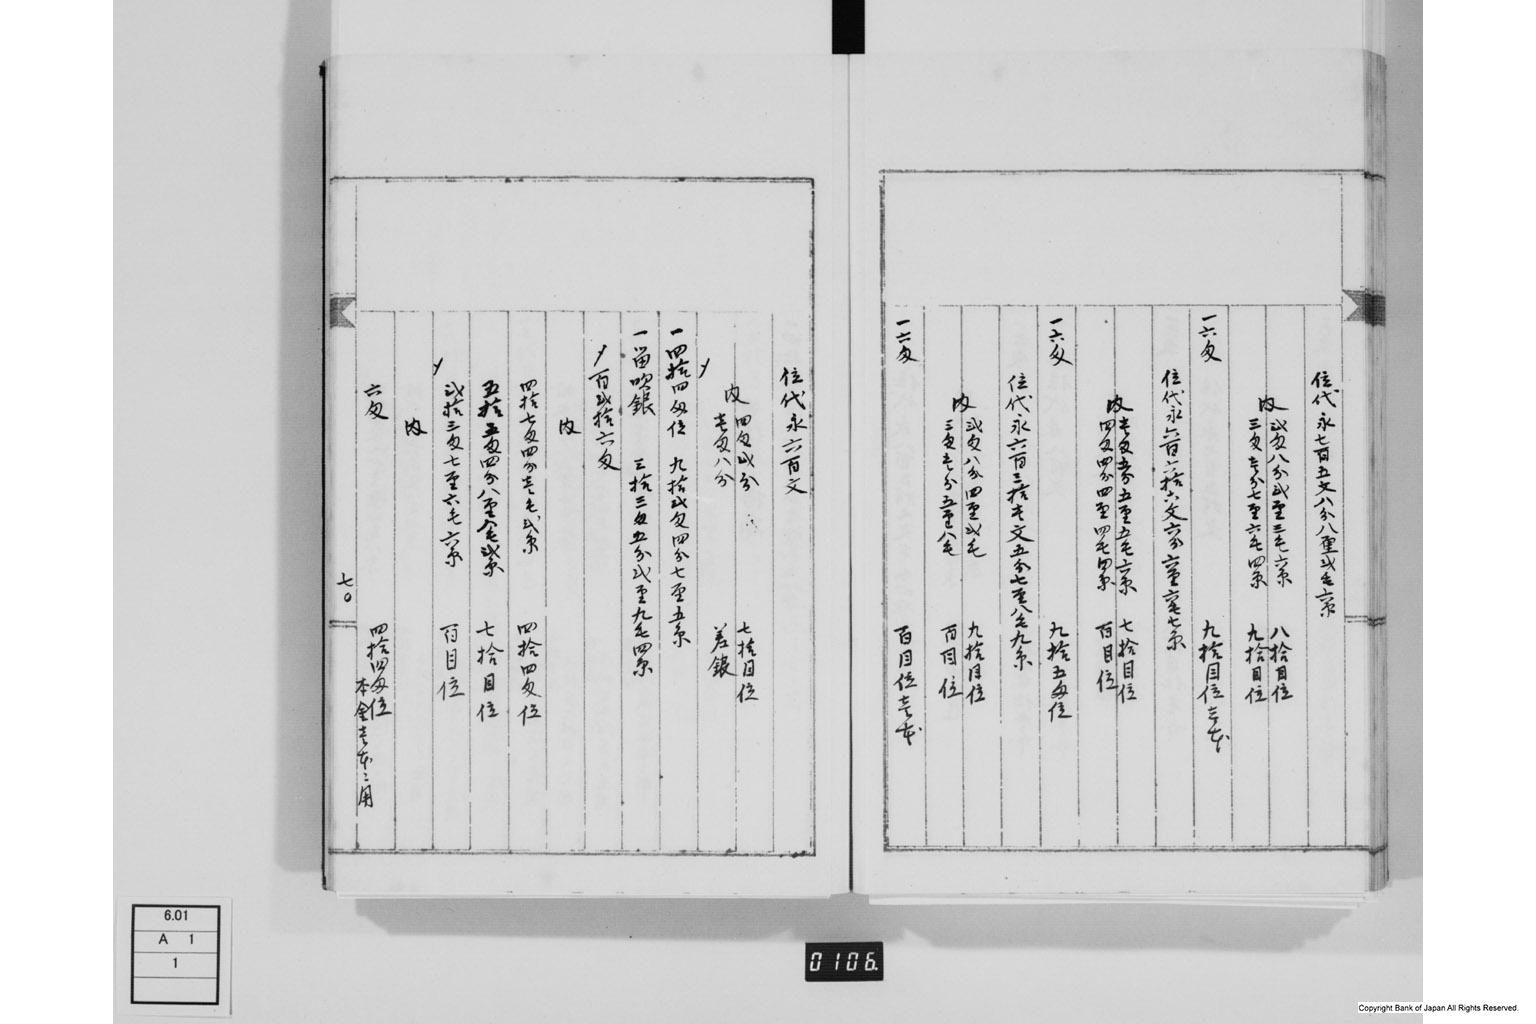 位代永七百五文八分八厘弐毛六糸
内 弐匁八分弐厘三毛六糸 八拾目位
三匁壱分七厘六毛四糸 九拾目位
一六匁 九拾目位壱本
位代永六百六拾六文六分六厘六毛七糸
内 壱匁五分五厘五毛六糸 七拾目位
四匁四分四厘四毛四糸 百目位
一六匁 九拾五匁位
位代永六百三拾壱文五分七厘八毛九糸
内 弐匁八分四厘弐毛 九拾目位
三匁壱分五厘八毛 百目位
一六匁 百目位壱本
位代永六百文
内 四匁弐分 七拾目位
壱匁八分 差銀
〆
一四拾四匁位 九拾弐匁四分七厘五糸
一留吹銀 三拾三匁五分弐厘九毛四糸
〆百弐拾六匁
内
四拾七匁四分壱毛弐糸 四拾四匁位
五拾五匁四分八厘八毛弐糸 七拾目位
弐拾三匁七厘六毛六糸 百目位
〆
内
六匁 四拾四匁位
本金壱本ニ用
七〇
6.01
A 1
1
0106.
Copyright Bank of Japan All Rights Reserved.